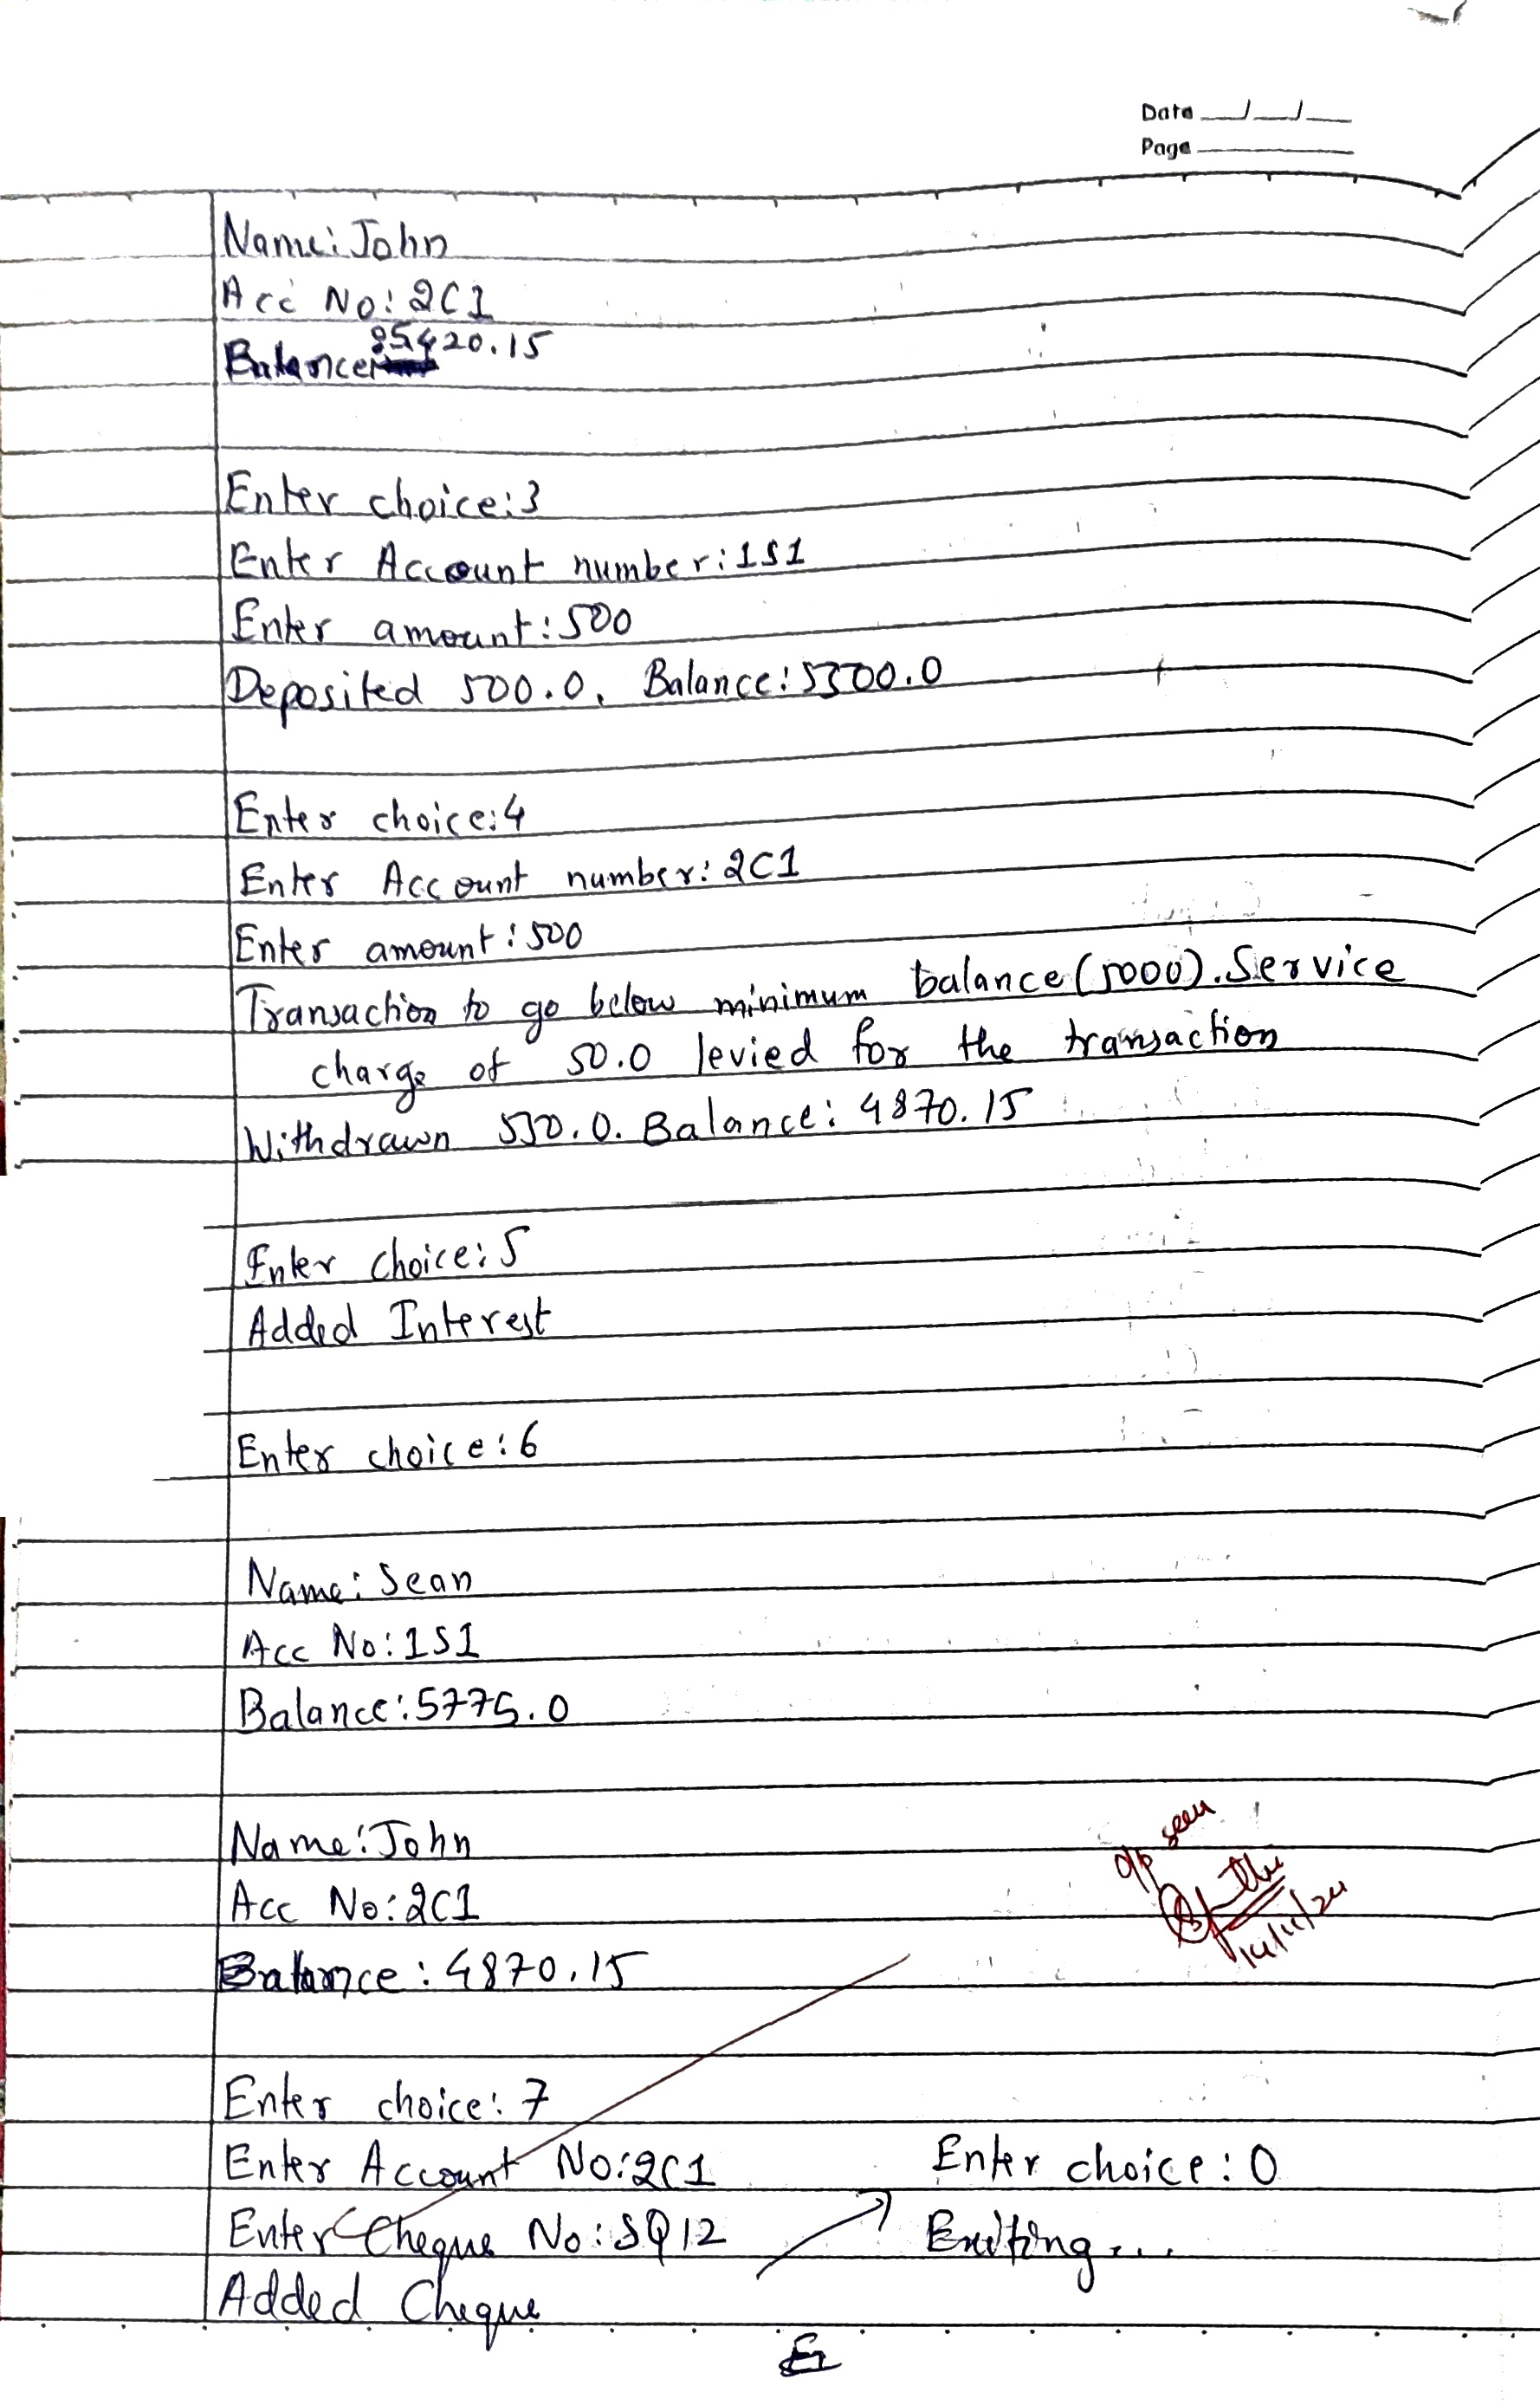 Date
Page
Name: John
Acc No: 2C1
Balance: 5420.15
Enter choice:3
Enter Account number:1S1
Enter amount:500
Deposited 500.0. Balance:5500.0
Enter choice:4
Enter Account number:2C1
Enter amount:500
Transaction to go below minimum balance(5000).Service
charge of 50.0 levied for the transaction
Withdrawn 550.0. Balance: 4870.15
Enter choice:5
Added Interest
Enter choice:6
Name: Sean
Acc No:1S1
Balance:5775.0
Name:John
Acc No:2C1
Balance:4870.15
o/p seen
14/11/24
Enter choice:7
Enter Account No:2C1
Enter Cheque No:SQ12
Added Cheque
Enter choice:0
Exiting...